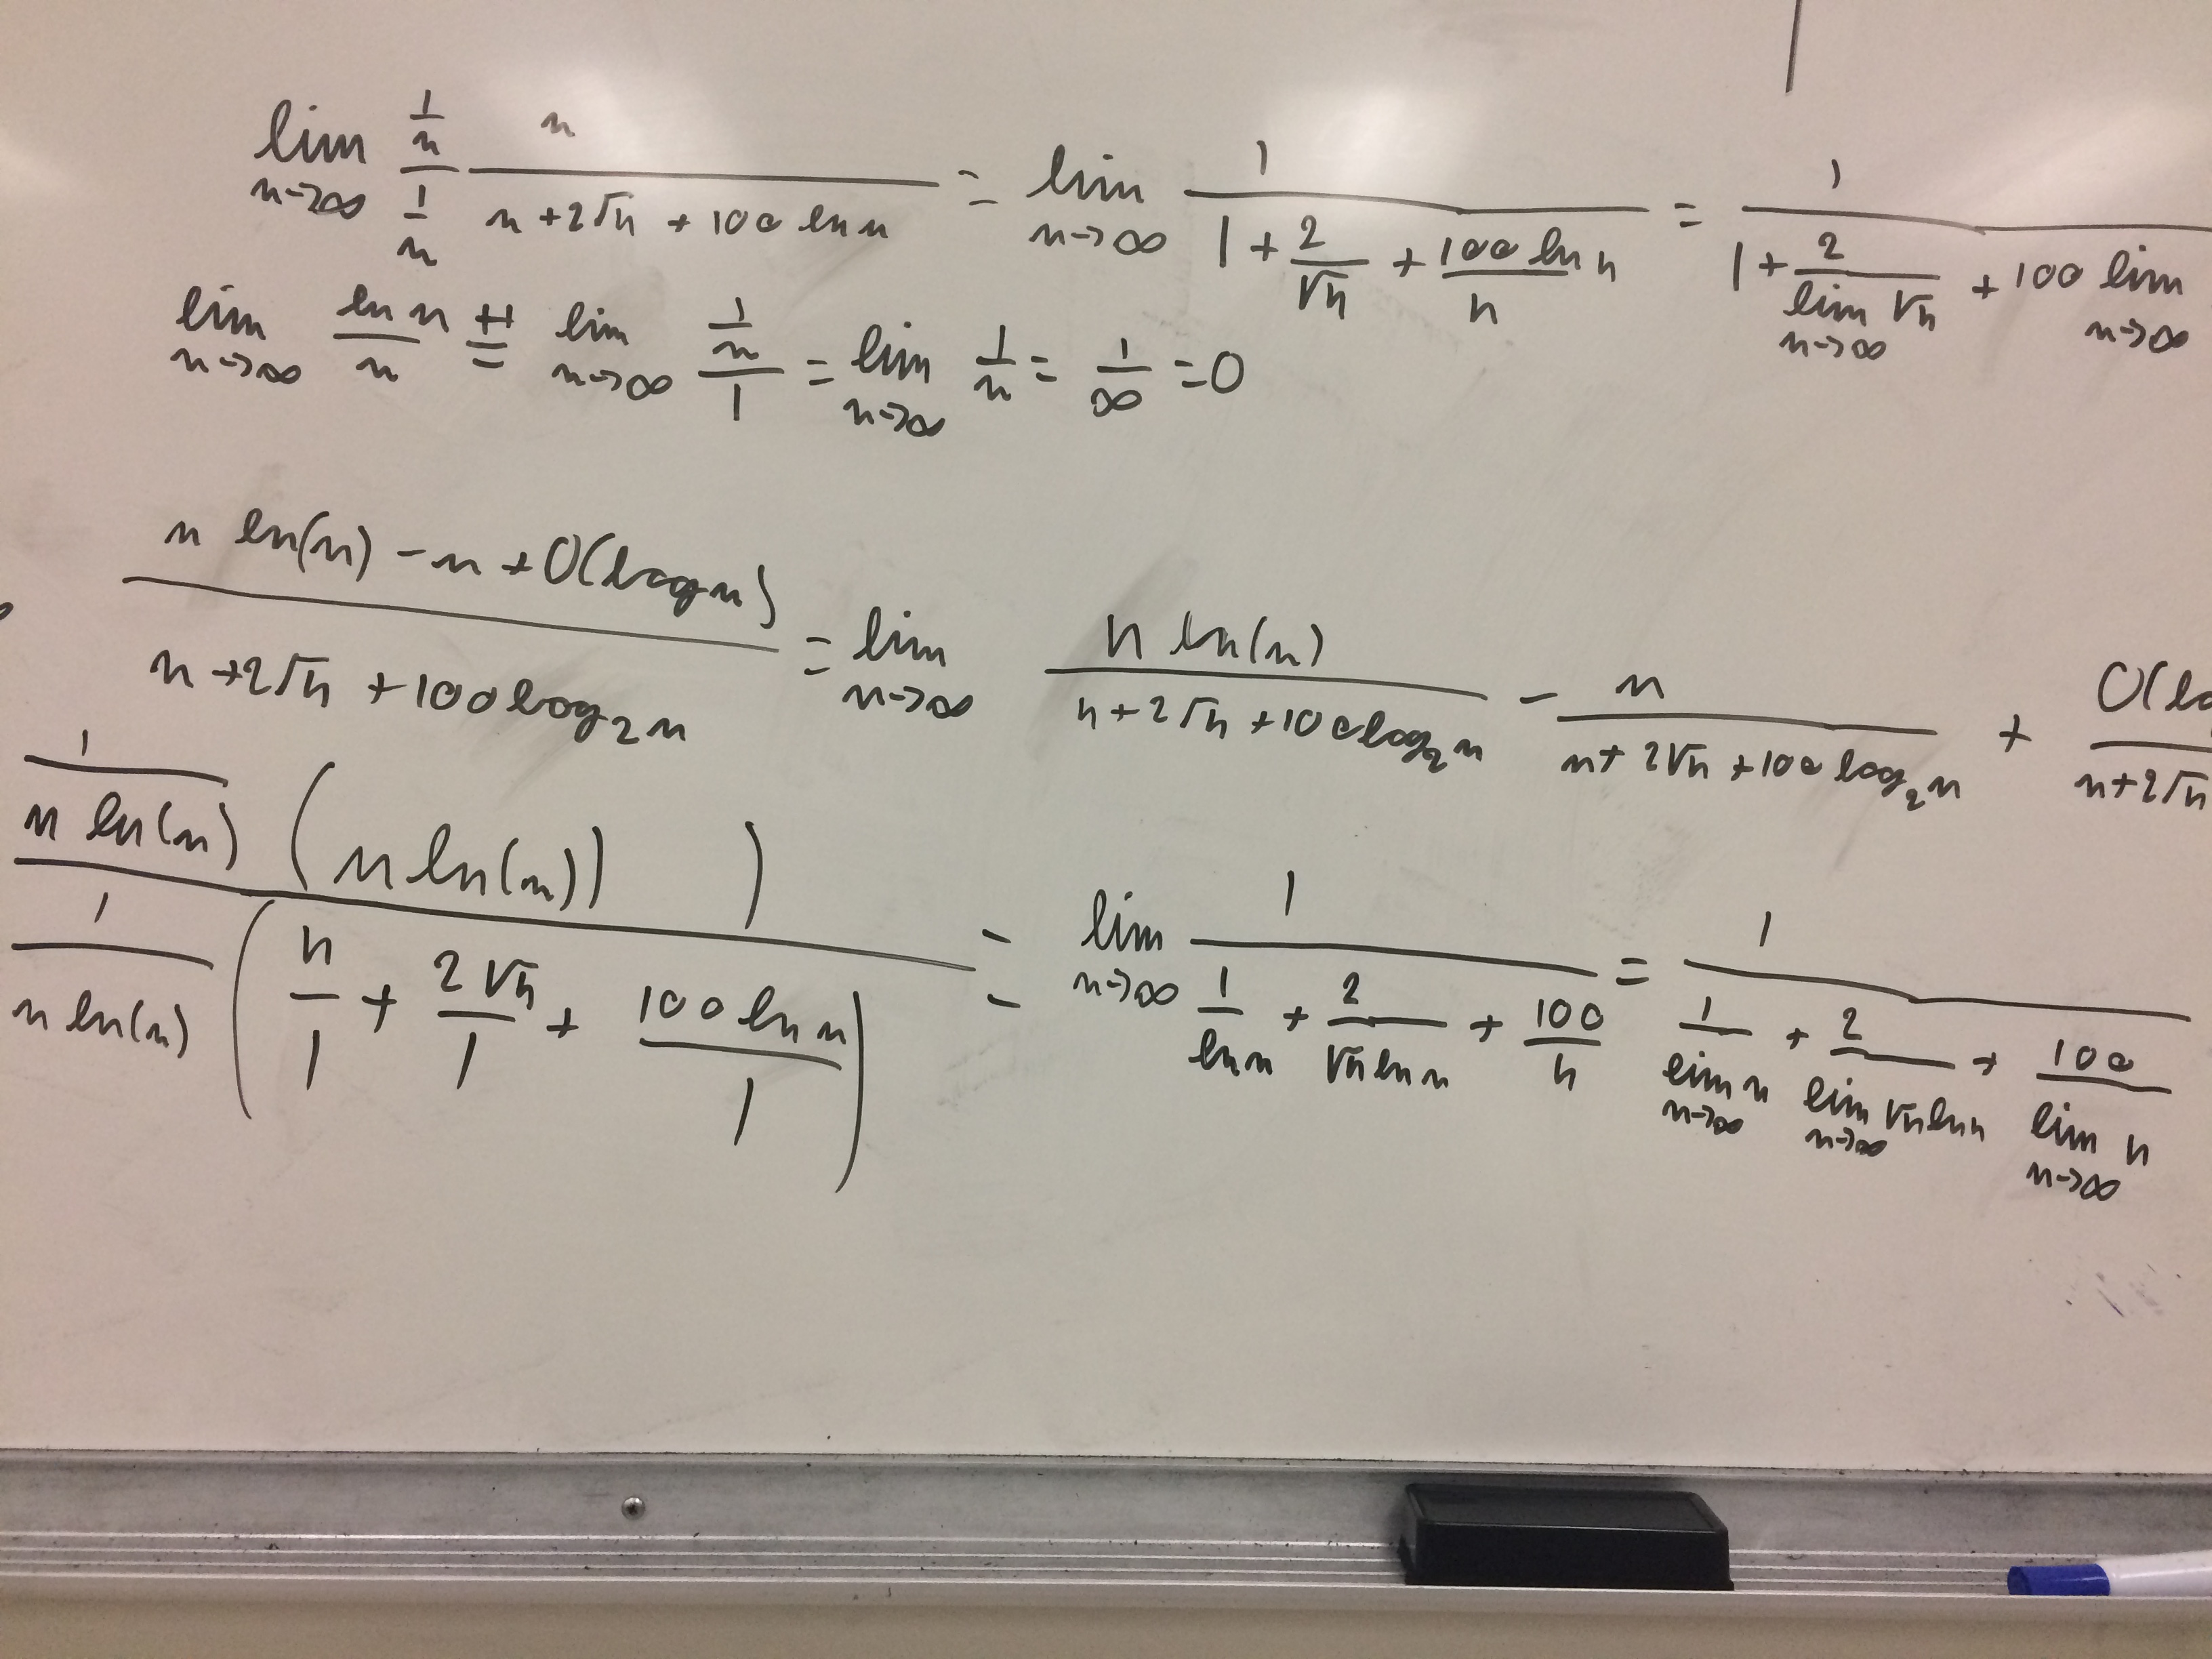 lim n→∞ (1/n)/(1/n) n/(n+2√n + 100 ln n) = lim n→∞ 1/(1 + 2/√n + 100 ln n/n) = 1/(1 + 2/(lim n→∞ √n) + 100 lim n→∞
lim n→∞ ln n/n H= lim n→∞ (1/n)/1 = lim n→∞ 1/n = 1/∞ = 0
(n ln(n) - n + O(log n))/(n + 2√n + 100 log₂ n) = lim n→∞ n ln(n)/(n + 2√n + 100 log₂ n) - n/(n + 2√n + 100 log₂ n) + O(lo/(n+2√n
(1/(n ln(n)) (n ln(n)) ))/(1/(n ln(n)) (n/1 + 2√n/1 + 100 ln n/1)) = lim n→∞ 1/(1/ln n + 2/(√n ln n) + 100/n) = 1/(1/(lim n→∞ n) + 2/(lim n→∞ √n ln n) + 100/(lim n→∞ n))